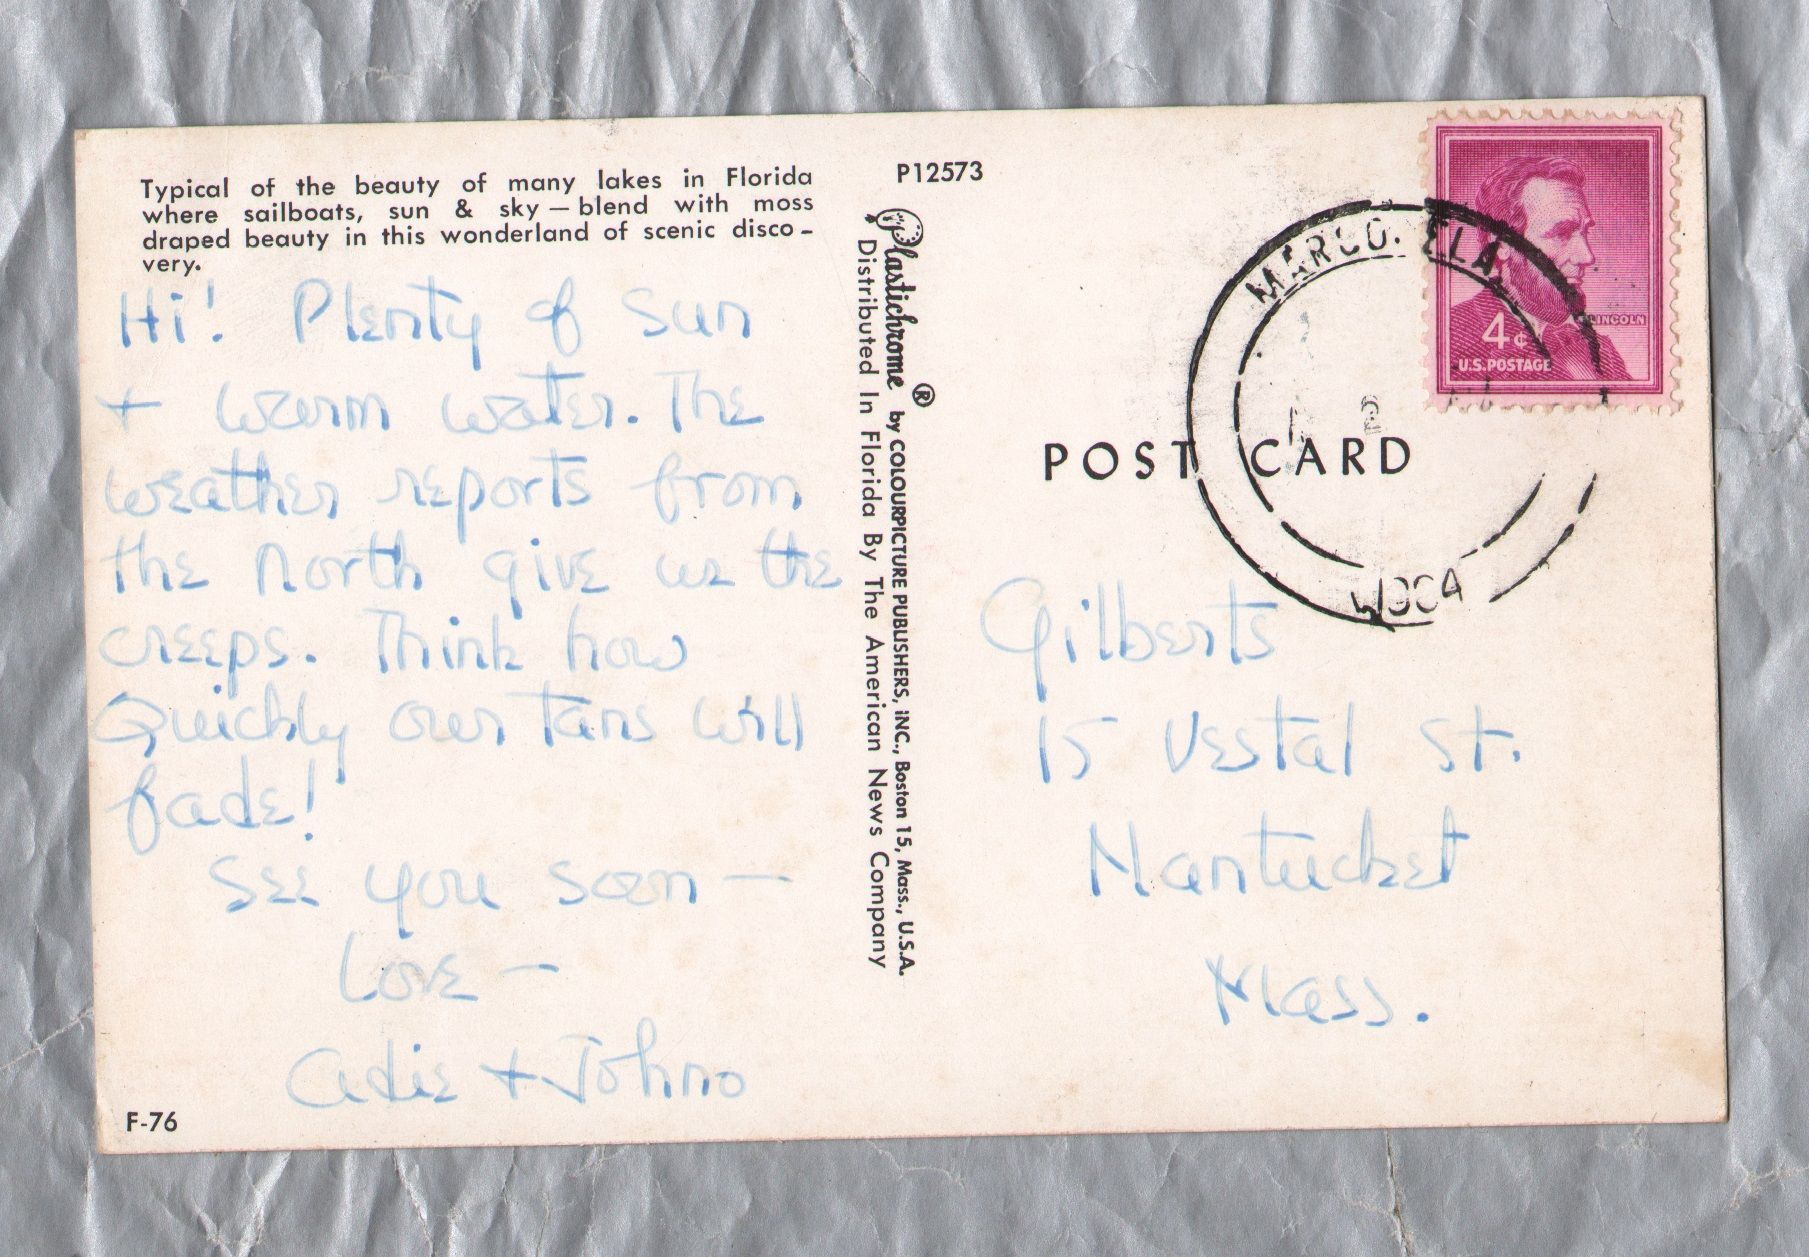 Typical of the beauty of many lakes in Florida
where sailboats, sun & sky — blend with moss
draped beauty in this wonderland of scenic disco-
very.
Hi! Plenty of sun
+ warm water. The
weather reports from
the North give us the
creeps. Think how
Quickly our tans will
fade!
See you soon —
Love —
Adie + Johno
F-76
P12573
Plastichrome ® by COLOURPICTURE PUBLISHERS, INC., Boston 15, Mass., U.S.A.
Distributed In Florida By The American News Company
POST CARD
MARCO. FLA
LINCOLN
4¢
U.S. POSTAGE
Gilberts
15 Vestal St.
Nantucket
Mass.